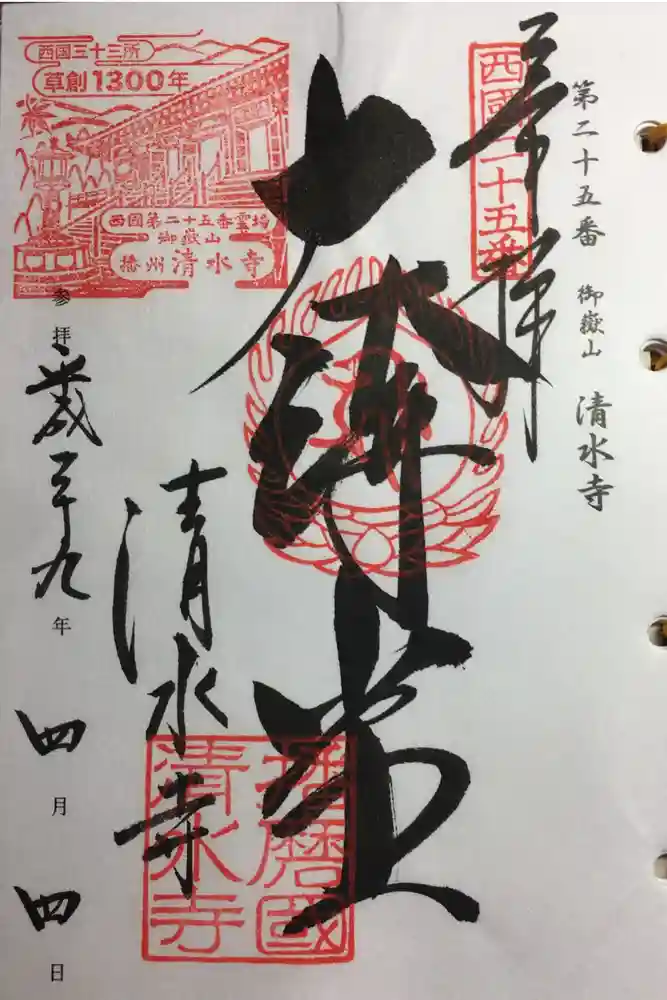 第二十五番 御嶽山 清水寺
奉拝
西國二十五番
大講堂
清水寺
播磨國
清水寺
西国三十三所
草創1300年
西国第二十五番霊場
御嶽山
播州 清水寺
参拝
年
四月
四日